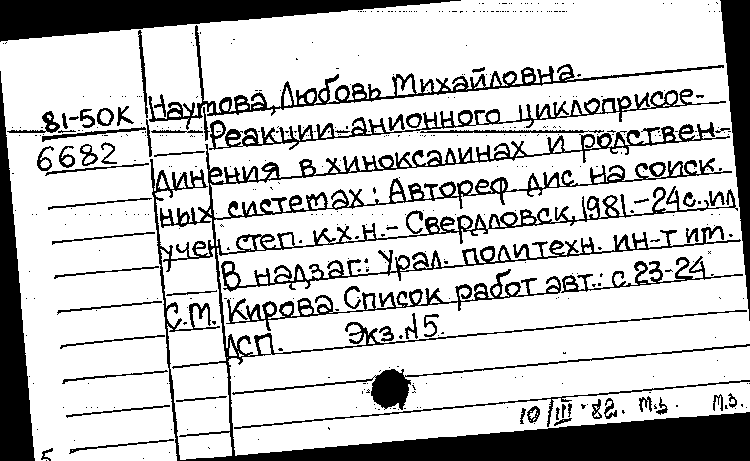 81-50К Наумова, Любовь Михайловна.
6682 Реакции анионного циклоприсое-
динения в хиноксалинах и родствен-
ных системах: Автореф. дис на соиск.
учен. степ. к.х.н.- Свердловск, 1981.-24с., ил
В надзаг.: Урал. политехн. ин-т им.
С.М. Кирова. Список работ авт.: с.23-24.
ДСП. Экз.№5.
10/III 82.